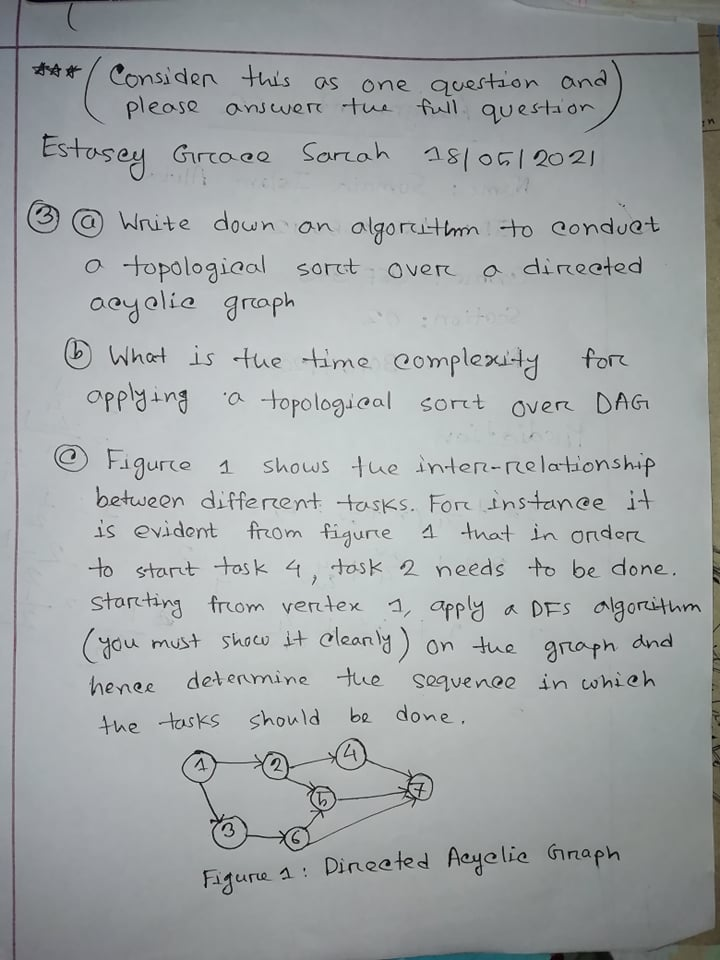 *** (Consider this as one question and
please answer the full question)
Estasey Grace Sarah 18/05/2021
3 a Write down an algorithm to conduct
a topological sort over a directed
acyclic graph
b What is the time complexity for
applying a topological sort over DAG
c Figure 1 shows the inter-relationship
between different tasks. For instance it
is evident from figure 1 that in order
to start task 4, task 2 needs to be done.
starting from vertex 1, apply a DFS algorithm
(you must show it clearly) on the graph and
hence determine the sequence in which
the tasks should be done.
1 2 4
5 7
3 6
Figure 1: Directed Acyclic Graph